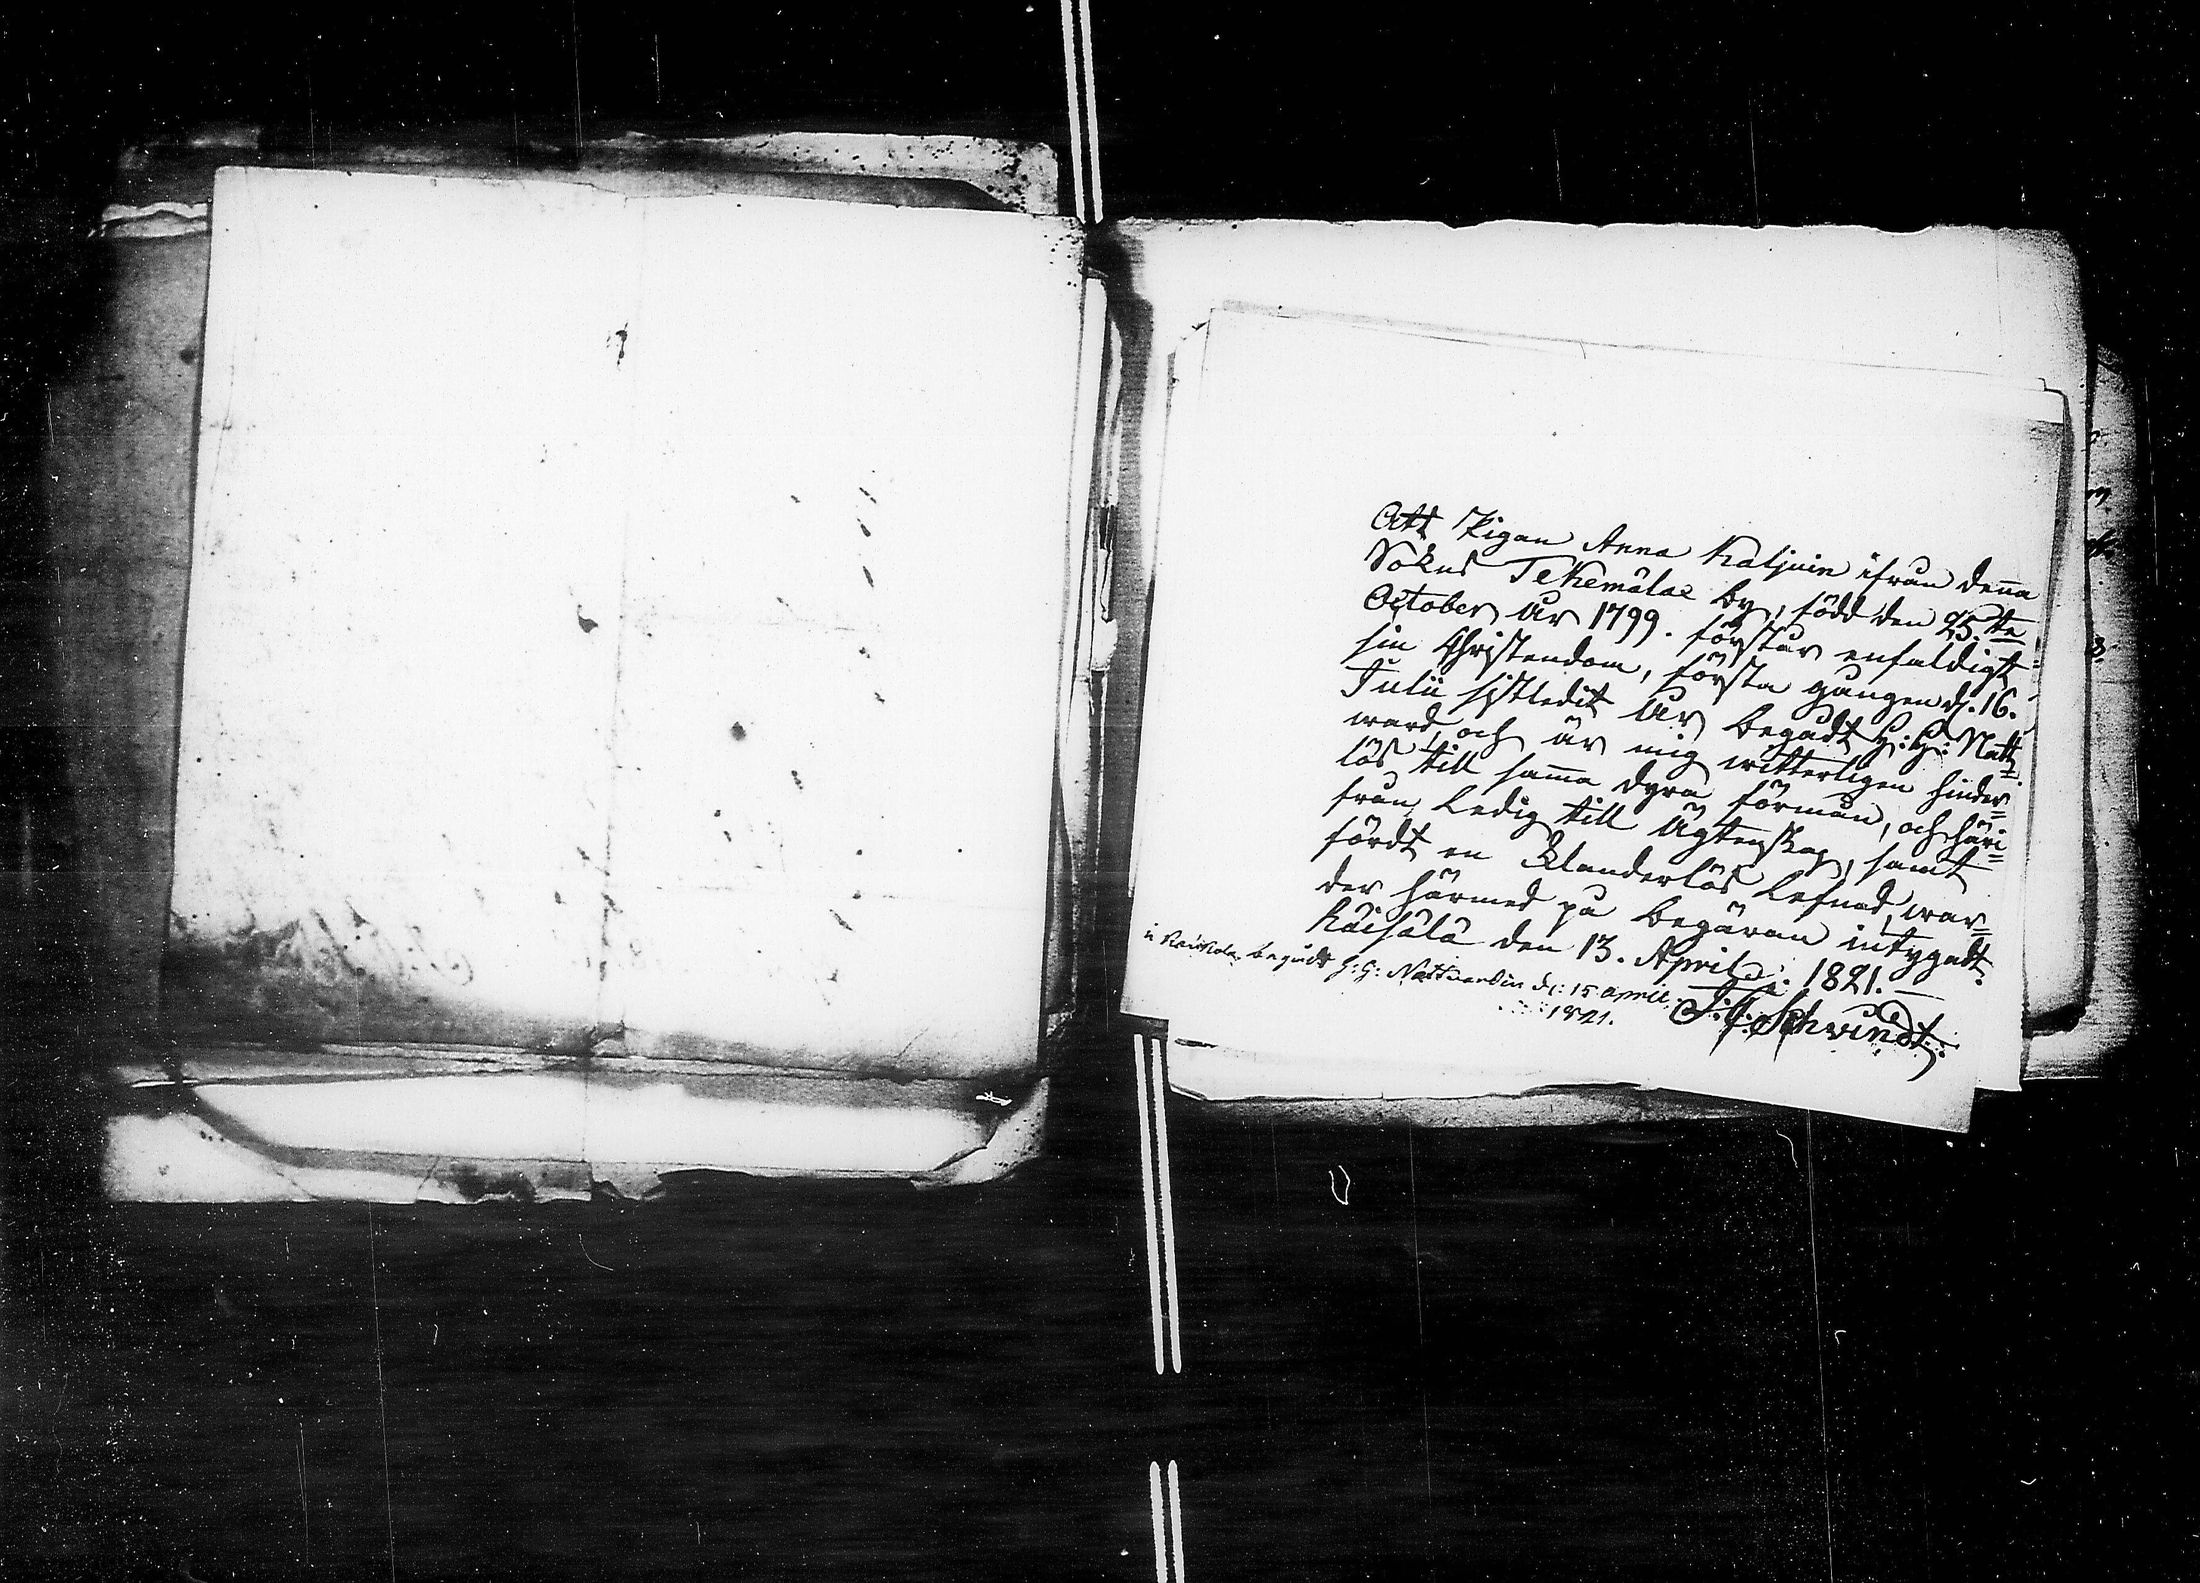 Att Pigan Anna Kaljuin ifrån denna
Sokns Tekemälae by, född den 25.te
October år 1799. förstår enfaldigt
sin Christendom, första gången d. 16.
Julii sistledit år begådt H: H: Natt=
ward, och är mig witterligen hinder=
lös till samma dyra förmån, och häri=
från ledig till Ägtenskap, samt
fördt en Klanderlös lefnad, war=
der härmed på begäran intygadt.
Käisälä den 13. April 1821.
J. Schvindt
begådt H: H: Nattvarden d: 15 april
1821.